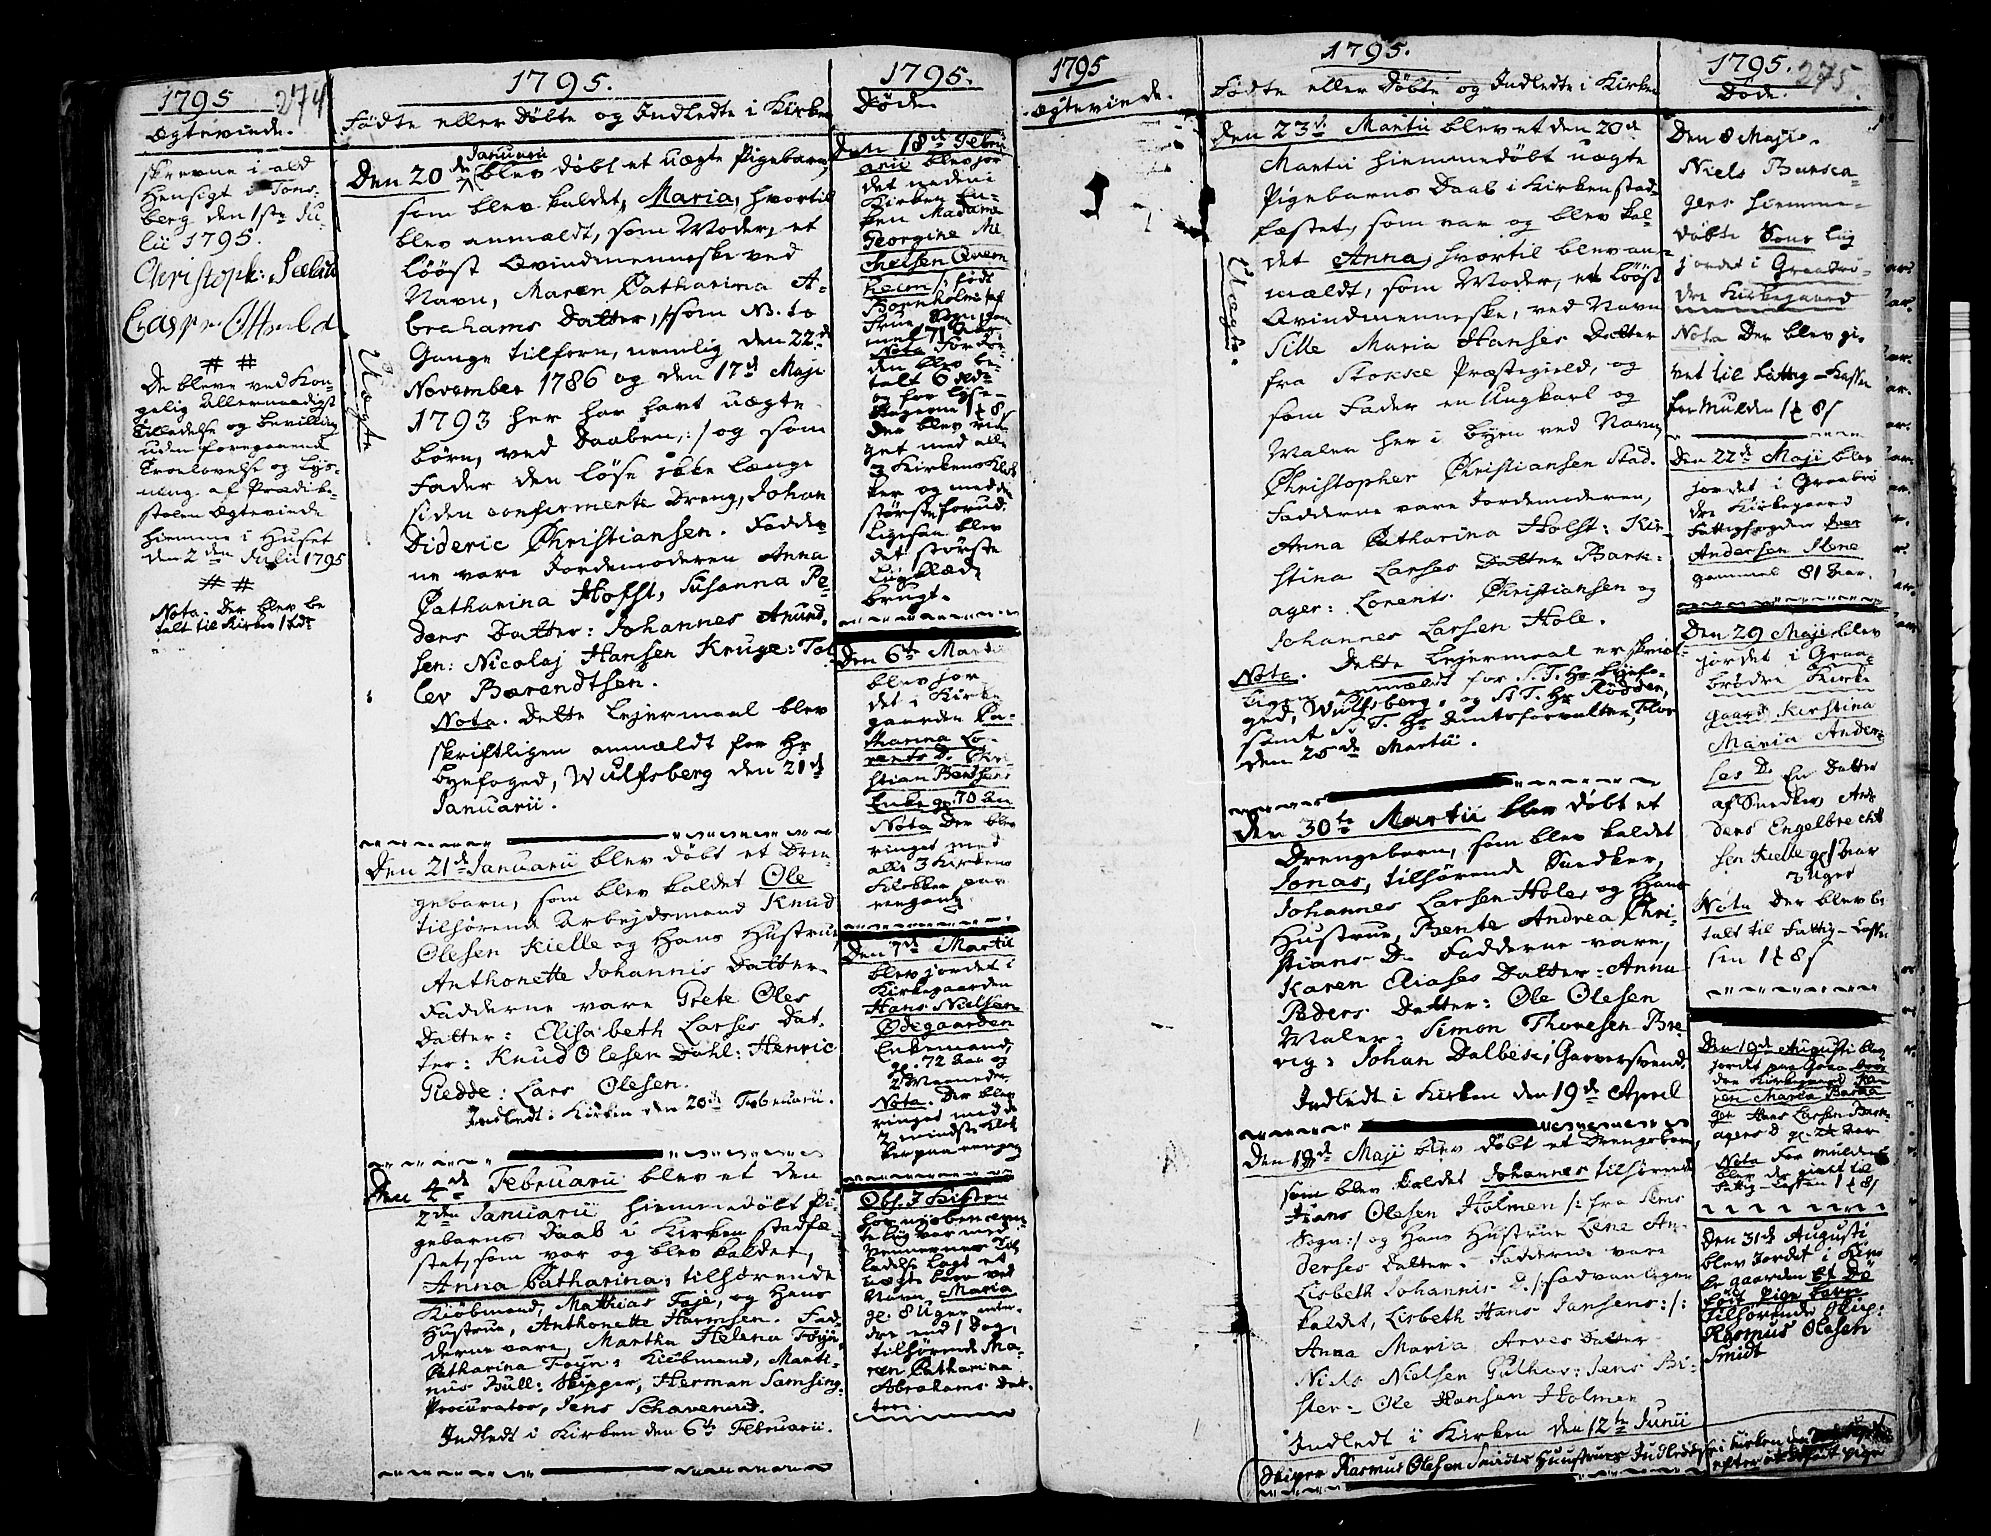 1795 274
Ægteviede.
skrevne i ald
Hensigt i Tøns-
berg den 1ste Ju-
lii 1795.
Christoph:
De bleve ved Kon-
gelig Allernaadigst
Tilladelse og Bevilling
uden foregaaende
Troelovelse og Lys-
ning af Prædike-
stolen Ægteviede
hiemme i Huset
den 2den Julii 1795
Nota. Der blev be
talt til Kirken 1 rdr
1795.
Fødte eller Døbte og Indledte i Kirken
Den 20de Januarii blev døbt et uægte Pigebarn,
som blev kaldet, Maria, hvortil
blev anmældt, som Moder, et
lööst Qvindmenneske ved
Navn, Maren Catharina A-
brahams Datter, /:som NB. to
Gange tilforn, nemlig den 22de
November 1786 og den 17de Maji
1793 her har havt uægte
börn, ved Daaben,:/ og som
Fader den löse ikke længe
siden confirmerte Dreng, Johan
Dideric Christiansen. Fadder-
ne vare Jordemoderen Anna
Catharina Holst, Susanna Pe-
ders Datter: Johannes Amund-
sen: Nicolaj Hansen Kruge: Tol-
lev Barendtsen.
Uægte
Nota. Dette Lejermaal blev
skriftligen anmældt for Hr
byefoged, Wulfsberg den 21de
Januarii.
Den 21de Januarii blev døbt et Dren-
gebarn, som blev kaldet Ole
tilhørende Arbejdsmand Knud
Olesen Kielle og Hans Hustrue,
Anthonette Johannis Datter.
Fadderne vare Grete Oles
Datter: Elisabeth Larses Dat-
ter: Knud Olesen Dahl: Henric
Gedde: Lars Olesen.
Indledt i Kirken den 20de Februarii.
Den 4de Februarii blev et den
2den Januarii hiemmedøbt Pi-
gebarns Daab i Kirken stadfæ-
stet, som var og blev kaldet,
Anna Catharina, tilhørende
Kiöbmand, Mathias Föje, og Hans
Hustrue, Anthonette Harmsen. Fad-
derne vare, Martha Helena Föyn
Catharina Föyn: Kiöbmand, Marti-
nus Bull: Skipper, Herman Samsing
Procurator, Jens Schavenius.
Indledt i Kirken den 6te Februarii.
1795.
Døde.
Den 18de Febru
arii blev jor
det nede i
Kirken En-
ken Madame
Georgine Mi
chelsen Qvern
heim /: født
Bornholm: af
gam
mel 71 Aar.
Nota. For
den blev be-
talt 6 rdr
og for lyse-
stagerne 1 [t] 8 s
Der blev rin
get med alle
3 Kirkens Klok
ker og med de
største forud.
Ligesaa blev
det største
Ligklæde
brugt.
Den 6te Martii
blev jor
det i Kirke
gaarden Ca-
tharina Lo-
rents D. Chri-
stian Bentsens
Enke gl. 70 Aar
Nota Der blev
ringet med
alle 3 Kirkens
Klokker paa
eengang.
Den 7de Martii
blev jordet i
Kirkegaarden
Hans Nielsen
Ødegaarden
Enkemand,
gl. 72 Aar og
2 Maaneder
Nota. Der blev
ringet med de
2 mindste Klok
ker paa eengang
Obs. I Kisten
Navn, Maria
gl. 8 Uger min-
dre end 1 Dag,
tilhørende Ma-
ren Catharina
Abrahams Dat-
ter.
1795
Ægteviede.
1795.
Fødte eller Døbte og Indledte i Kirken
Den 23de Martii blev et den 20de
Martii hiemmedøbt uægte
Pigebarns Daab i Kirken stad-
fæstet, som var og blev kal-
det Anna, hvortil blev an-
mældt, som Moder, et lööst
Qvindmenneske, ved Navn
Sille Maria Hanses Datter
fra Stokke Præstegield, og
som Fader en Ungkarl og
Maler her i byen ved Navn,
Christopher Christiansen Stad.
Fadderne vare Jordemoderen,
Anna Catharina Holst: Kir-
stina Larses Datter Bark-
ager: Lorents Christiansen og
Johannes Larsen Hole.
Uægte.
Nota. Dette Lejermaal er skrivt-
ligen anmældt for S.T. Hr Byefo-
ged, Wulfsberg, og S.T. Hr Rödder,
samt S.T. Hr Amtsforvalter,
den 25de Martii.
Den 30te Martii blev døbt et
Drengebarn, som blev kaldet
Jonas, tilhørende Snedker,
Johannes Larsen Hole, og Hans
Hustrue, Bente Andrea Chri-
stians D. Fadderne vare,
Karen Eliases Datter: Anna
Peders Datter: Ole Olesen
Maler: Simon Thoresen Bre
vig: Johan Dalbek, Garversvend.
Indledt i Kirken den 19de April
Den 18de Maji blev døbt et Drengebarn,
som blev kaldet Johannes tilhørende
Hans Olesen Holmen /: fra Sems
Sogn:/ og Hans Hustrue Lene An-
derses Datter. Fadderne vare
Lisbeth Johannis D. /: sædvanligen
kaldet, Lisbeth Hans Jansens:/:
Anna Maria Arves Datter
Niels Nielsen Gulhav: Jens Bi-
ster: Ole Hansen Holmen
Indledt i Kirken den 12te Junii
Skiper Rasmus Olesen Smidts Huustrues Indledelse i Kirken den
efter et dødfødt Pige
1795. 275.
Døde.
Den 8 Maji.
Niels Barka-
gers hiemme-
døbte Søns Lig
jordet i Graabrö-
dre Kirkegaard
Nota Der blev gi-
vet til Fattig-Kassen
for Mulden 1 [t] 8 s
Den 22de Maji blev
jordet i Graabrö
dre Kirkegaard
Fattigfogden Iver
Andersen Stene
gammel 81 Aar.
Den 29 Maji blev
jordet i Graa-
brödre Kirke
gaard Kirstina
Maria Ander-
ses D. En Datter
af Snedker And-
ders Engelbrecht
sen Kielle gl 1 Aar
3 Uger
Nota Der blev be
talt til Fattig-Casse
sen 1 [t] 8 s
Den 19de Augusti blev
jordet paa Graabrö
dre Kirkegaard Ka-
ren Maria Barka
ger Hans Larsen Bark-
agers D gl. 2½ Aar
Nota For Mulden
blev der givet til
Fattig-Cassen 1 [t] 8 s
Den 31de Augusti
blev Jordet i Kirk
gaarden Et Dö
født Pige Barn
Tilhørende Skip:
Rasmus Olesen
Smidt